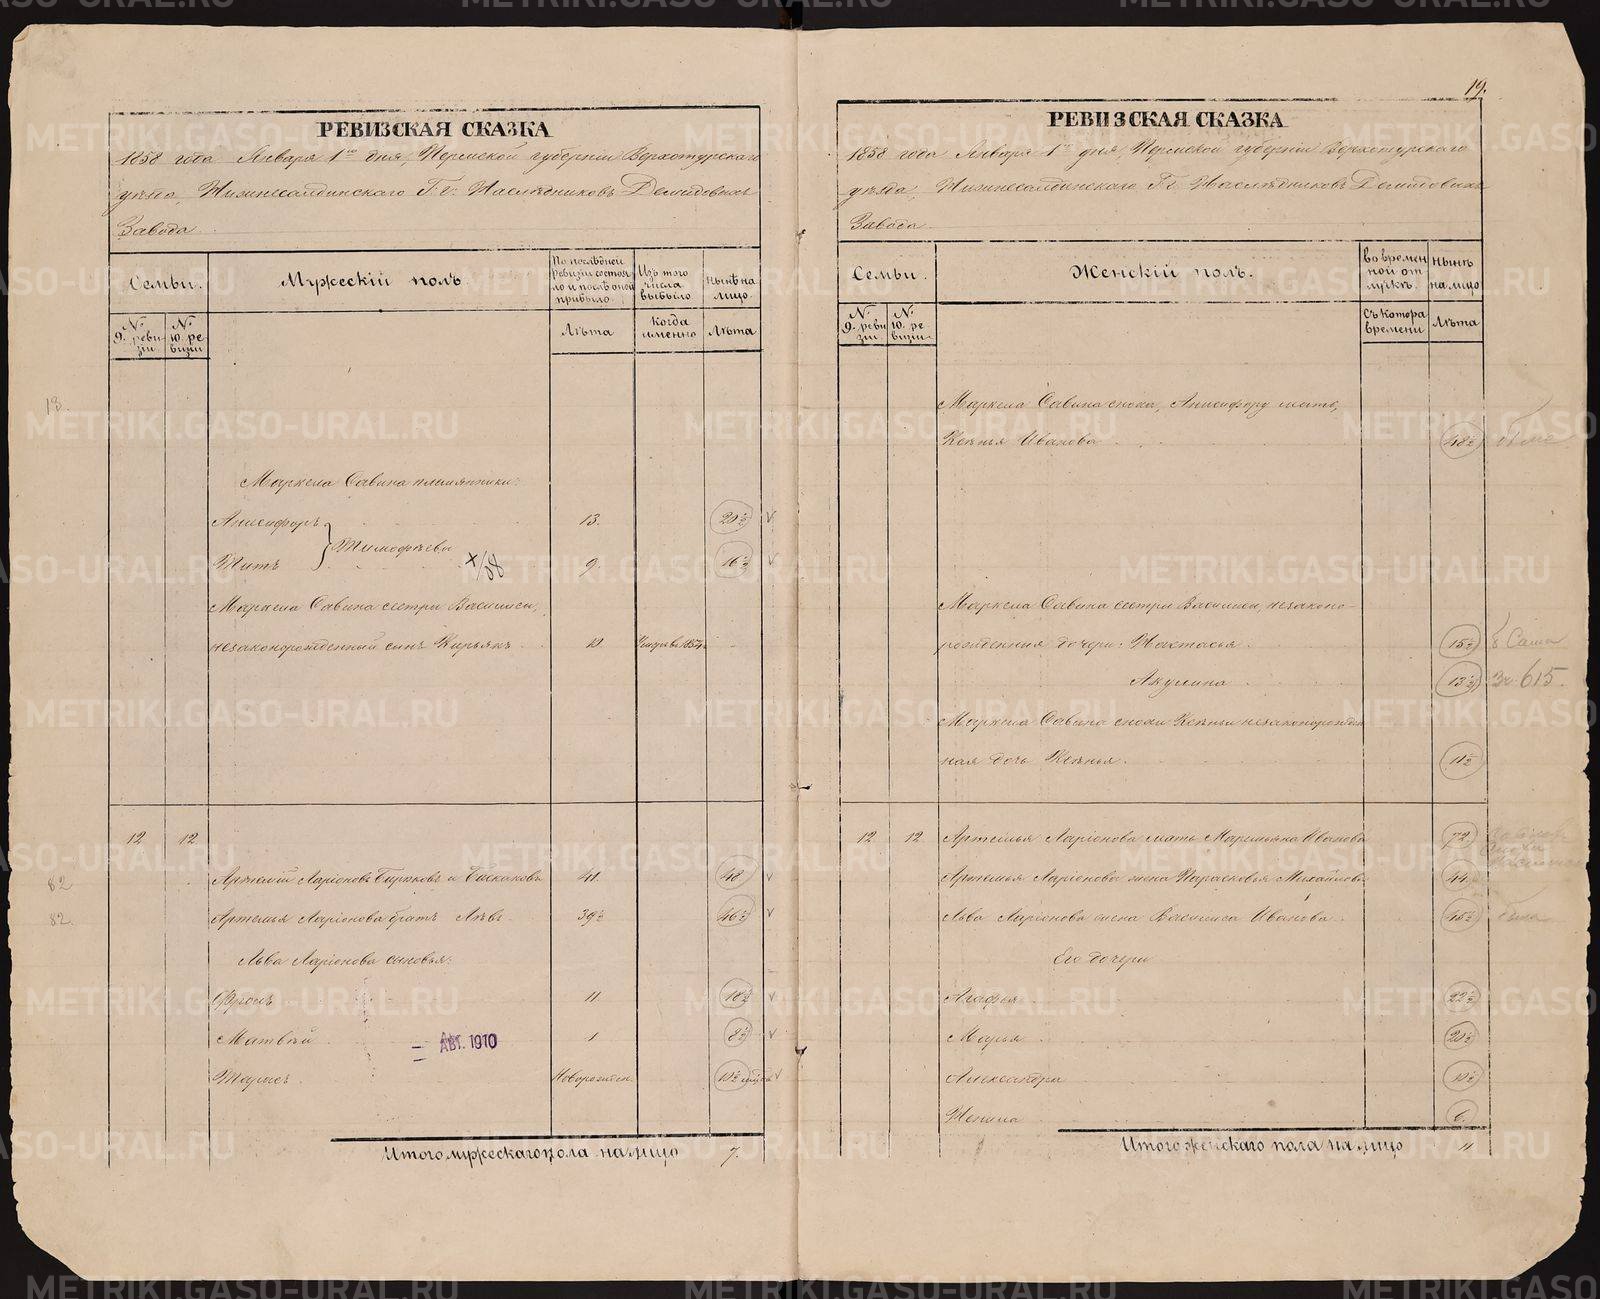 19.
РЕВИЗСКАЯ СКАЗКА
1858 года Января 1го дня, Пермской губернiи Верхотурскаго
уѣзда, Нижнесалдинскаго Г. г. Наслѣдниковъ Демидовыхъ
Завода
Семьи.
Мужескiй полъ.
По послѣдней ревизiи состояло и послѣ оной прибыло
Изъ того числа выбыло
Нынѣ на лицо
№ 9. ревизiи
№ 10. ревизiи
Лѣта
Когда именно
Лѣта
18.
Маркела Савина племянники:
Анисифоръ 13. 20½ v
Титъ } Тимофѣевы x/58 9. 16½ v
Маркела Савина сестры Василисы,
незаконорожденный сынъ Кирьякъ 10. 1854.
12 12
82 Артемiй Ларiоновъ 41. 48 v
82. Артемья Ларiонова братъ Левъ 39½ 46½ v
Льва Ларiонова сыновья:
Фролъ 11 18½ v
Матвѣй 1 8½ v
АВГ. 1910
Тарасъ Новорожден. 10½ v
Итого мужескаго пола на лицо 7.
РЕВИЗСКАЯ СКАЗКА
1858 года Января 1го дня, Пермской губернiи Верхотурскаго
уѣзда, Нижнесалдинскаго Г. г. Наслѣдниковъ Демидовыхъ
Завода
Семьи.
Женскiй полъ.
Во временной отлучкѣ
Нынѣ на лицо
№ 9. ревизiи
№ 10. ревизiи
Съ котора времени
Лѣта
Маркела Савина сноха, Анисифору мать,
Ксенья Иванова 48½
Маркела Савина сестры Василисы, незаконо-
рожденныя дочери: Настасья 15½ Саша
Акулина 13½ 615.
Маркела Савина снохи Ксеньи незаконорожден
ная дочь Ксенья. 11½
12 12. Артемья Ларiонова мать Маремьяна Иванова 72
Артемья Ларiонова жена Парасковья Михайлова 44
Льва Ларiонова жена Василиса Иванова 45½
Его дочери
Агафья 22½
Марья 20½
Александра 10½
6
Итого женскаго пола на лицо 11
METRIKI.GASO-URAL.RU